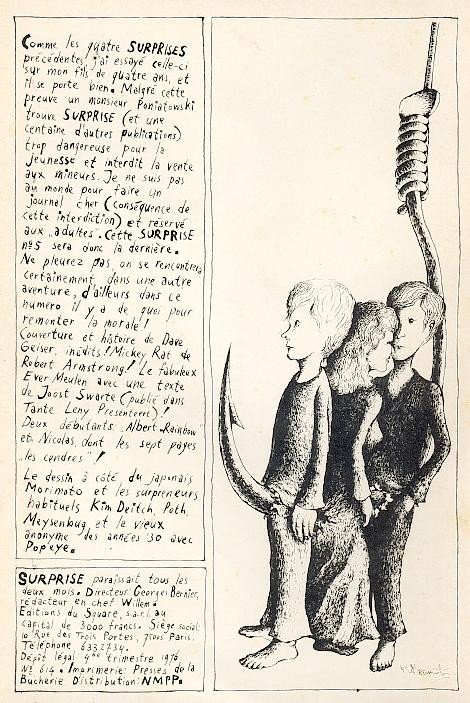 Comme les quatre SURPRISES
précédentes j'ai essayé celle-ci
sur mon fils de quatre ans, et
il se porte bien. Malgré cette
preuve un monsieur Poniatowski
trouve SURPRISE (et une
centaine d'autres publications)
trop dangereuse pour la
jeunesse et interdit la vente
aux mineurs. Je ne suis pas
au monde pour faire un
journal cher (conséquence de
cette interdiction) et réservé
aux „adultes". Cette SURPRISE
no5 sera donc la dernière.
Ne pleurez pas, on se rencontrera
certainement dans une autre
aventure, d'ailleurs dans ce
numero il y a de quoi pour
remonter la morale!
Couverture et histoire de Dave
Geiser, inédits! Mickey Rat de
Robert Armstrong! Le fabuleux
Ever Meulen avec une texte
de Joost Swarte (publié dans
Tante Leny Presenteert)!
Deux débutants: „Albert Rainbow"
et Nicolas, dont les sept payes
„les cendres"!
Le dessin à côté, du japonais
Morimoto et les surpreneurs
habituels Kim Deitch, Poth,
Meysenbug et le vieux
anonyme des années '30 avec
Popeye.
SURPRISE paraissait tous les
deux mois. Directeur Georges Bernier,
rédacteur en chef Willem.
Editions du Square, s.a.r.l. au
capital de 3000 francs. Siège social:
10 Rue des Trois Portes, 75005 Paris.
Téléphone 6332734.
Dépôt légal 4me trimestre 1976
No 614. Imprimerie: Presses de la
Bucherie. Distribution: NMPP.